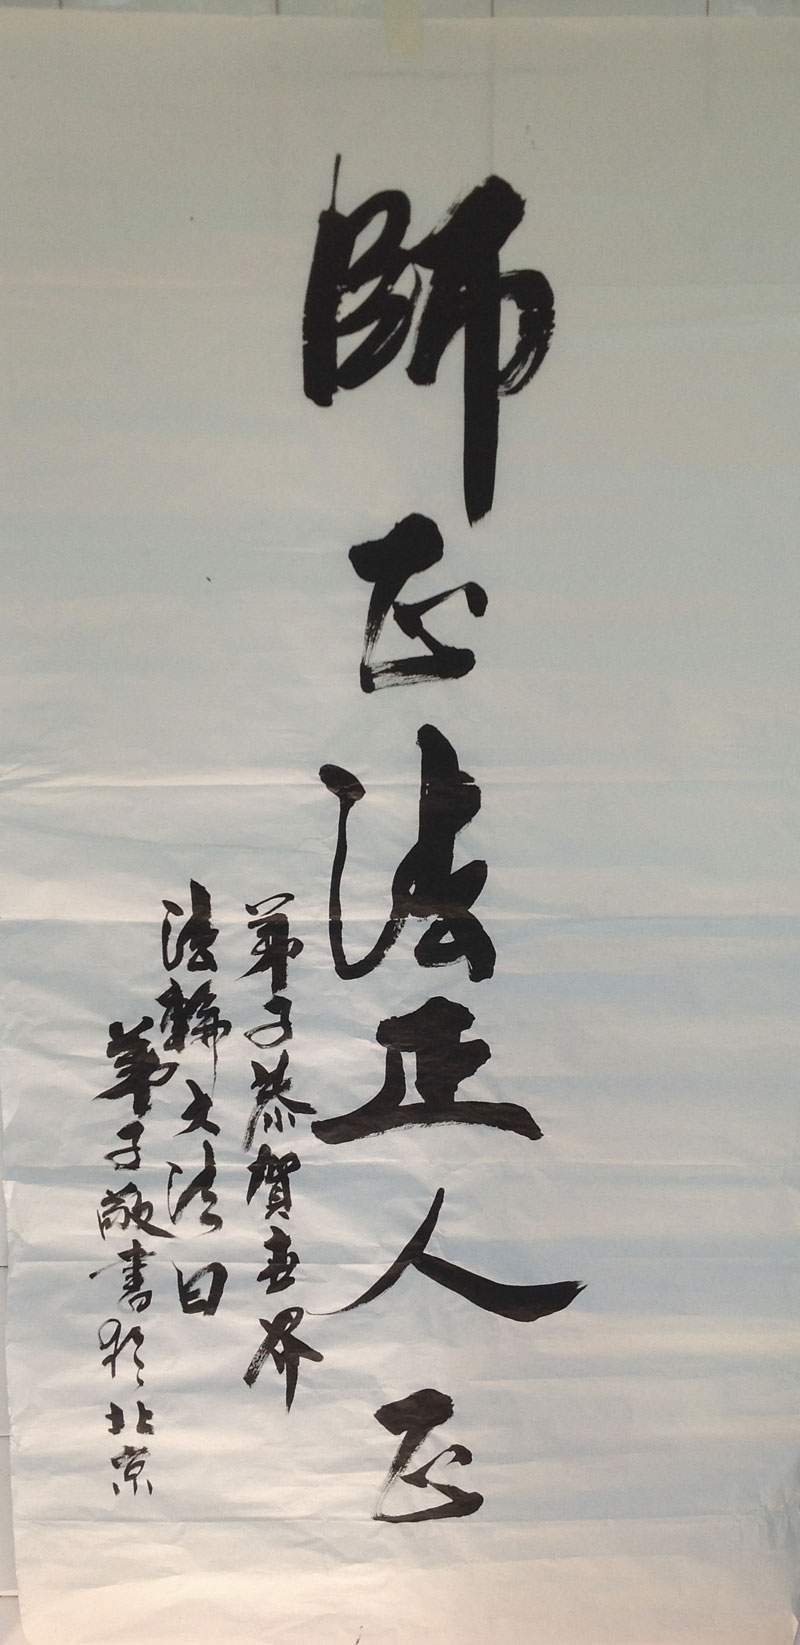 師正法正人正
弟子恭賀世界
法輪大法日
弟子敬書於北京